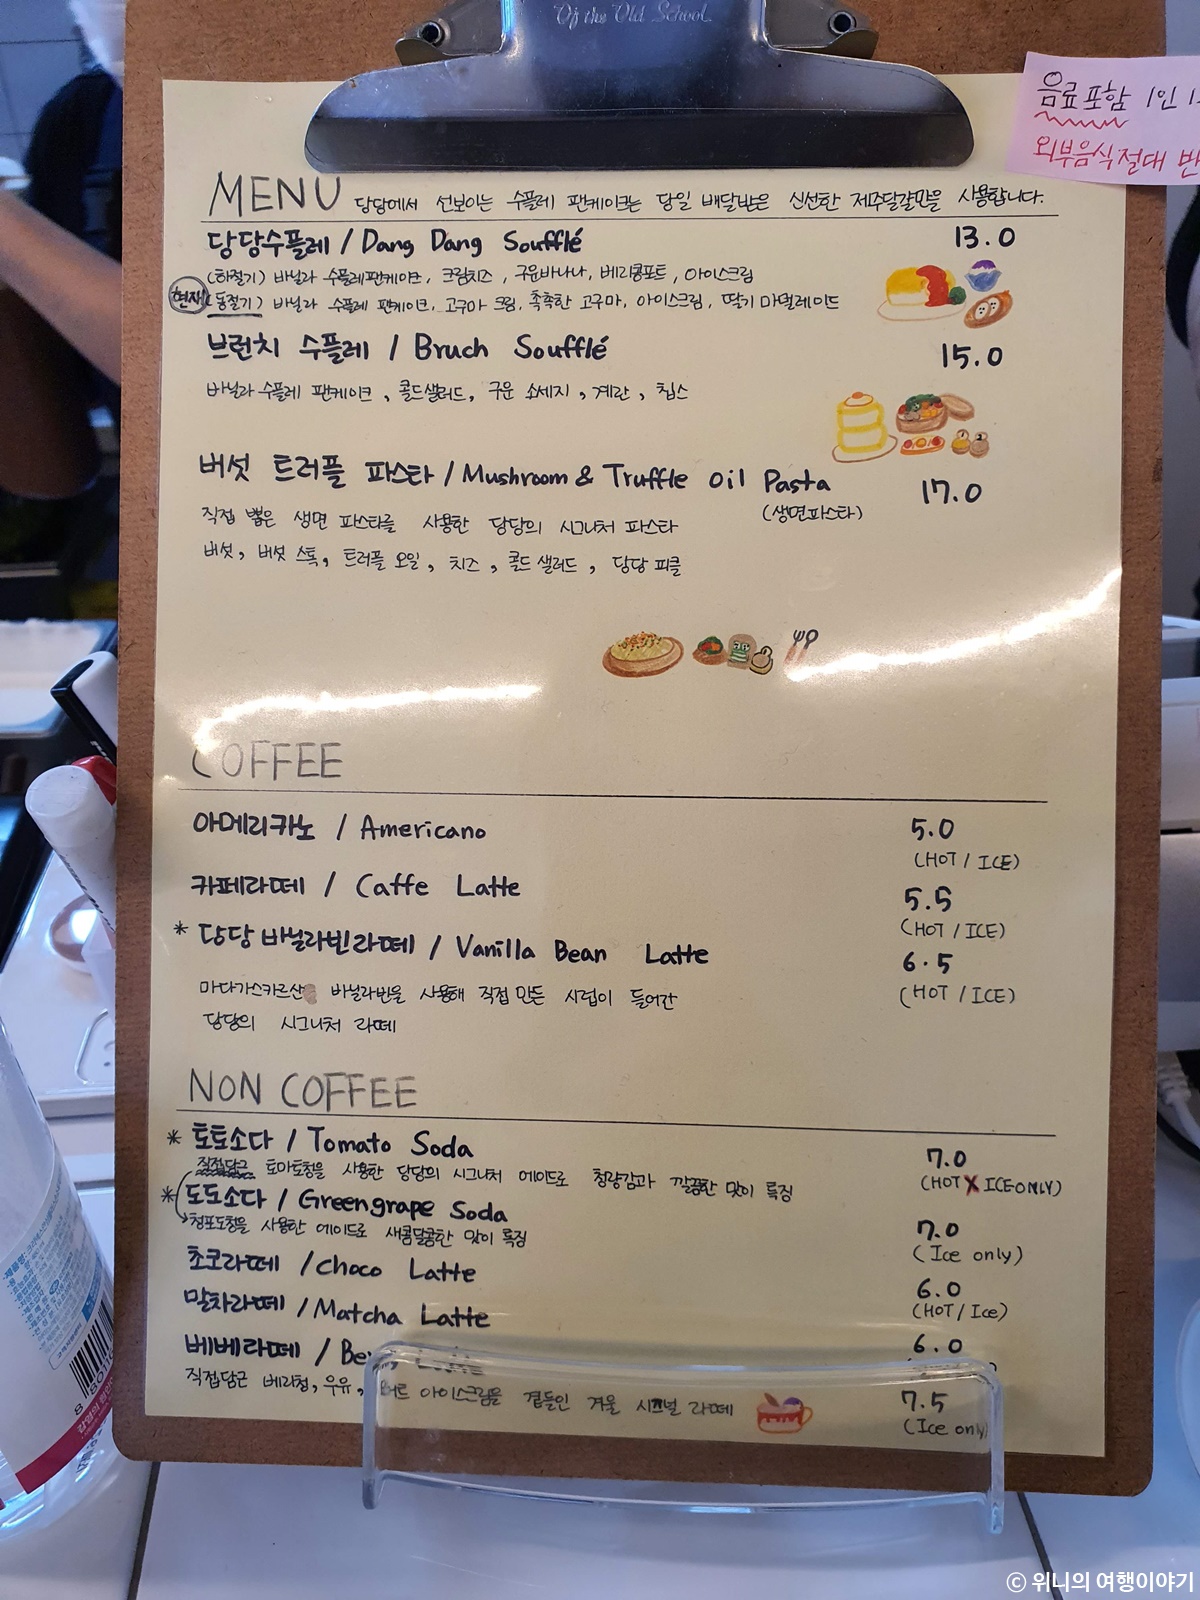 Of the Old School
음료포함 1인 1
외부음식절대 반
MENU 당당에서 선보이는 수플레 팬케이크는 당일 배달받은 신선한 제주달걀만을 사용합니다.
당당수플레 / Dang Dang Soufflé 13.0
(하절기) 바닐라 수플레팬케이크, 크림치즈, 구운바나나, 베리콩포트, 아이스크림
현재 (동절기) 바닐라 수플레 팬케이크, 고구마 크림, 촉촉한 고구마, 아이스크림, 딸기 마멀레이드
브런치 수플레 / Bruch Soufflé 15.0
바닐라 수플레 팬케이크, 콜드샐러드, 구운 소세지, 계란, 칩스
버섯 트러플 파스타 / Mushroom & Truffle oil Pasta 17.0
(생면파스타)
직접 뽑은 생면 파스타를 사용한 당당의 시그니처 파스타
버섯, 버섯 스톡, 트러플 오일, 치즈, 콜드 샐러드, 당당 피클
COFFEE
아메리카노 / Americano 5.0
(HOT / ICE)
카페라떼 / Caffe Latte 5.5
(HOT / ICE)
* 당당 바닐라빈라떼 / Vanilla Bean Latte 6.5
(HOT / ICE)
마다가스카르산 바닐라빈을 사용해 직접 만든 시럽이 들어간
당당의 시그니처 라떼
NON COFFEE
* 토토소다 / Tomato Soda 7.0
직접담근 토마토청을 사용한 당당의 시그니처 에이드로 청량감과 깔끔한 맛이 특징 (HOT X ICE ONLY)
* 도도소다 / Greengrape Soda 7.0
청포도청을 사용한 에이드로 새콤달콤한 맛이 특징 (Ice only)
초코라떼 / Choco Latte 6.0
(HOT / Ice)
말차라떼 / Matcha Latte 6.0
베베라떼 / 7.5
직접담근 베리청, 우유, 아이스크림을 곁들인 겨울 시즈널 라떼 (Ice only
© 위니의 여행이야기